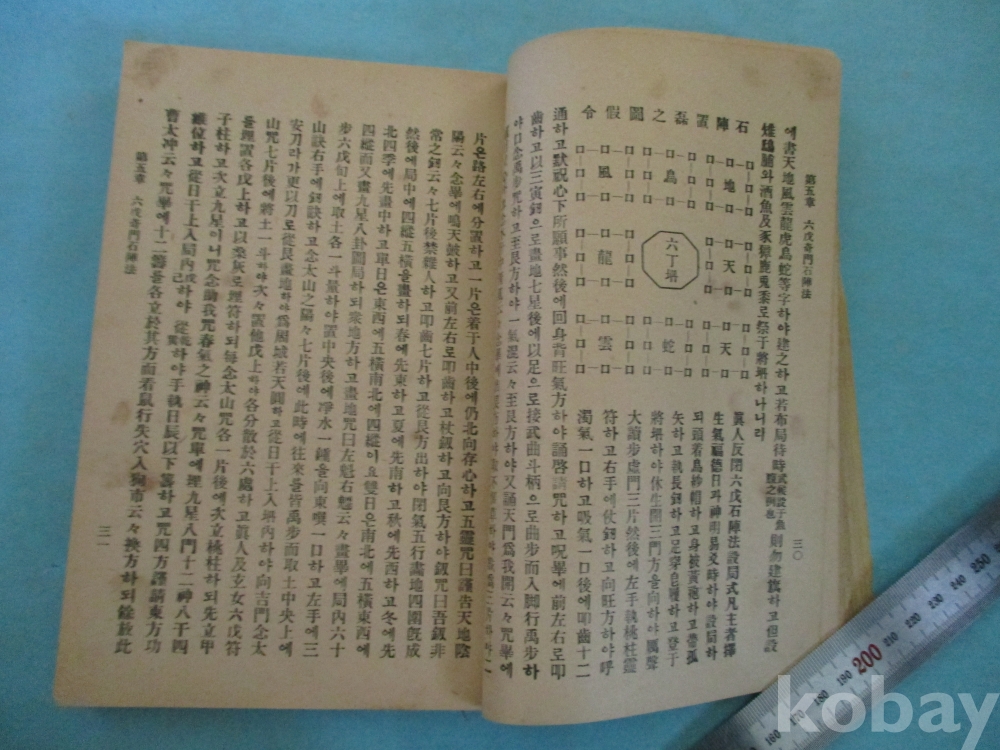 第五章 六戊奇門石陣法 三〇
에書天地風雲龍虎鳥蛇等字하야建之하고若布局待時
則勿建旗하고但設
石陣置磊之圖假令
地
天
天
鳥
六丁壇
蛇
風
龍
雲
眞人反閉六戊石陣法設局式凡主者擇
生氣福德日과神明易爻時하야設局하
되頭着烏紗帽하고身被黃龍하고帶孤
矢하고執長釼하고足穿皀履하고登于
將壇하야休生開三門方을向하야厲聲
大讀步虛門三片然後에左手執桃柱靈
符하고右手에仗釼하고向旺方하야呼
濁氣一口하고吸氣一口後에叩齒十二
通하고默祝心下所願事然後에回身背旺氣方하야誦啓請咒하고呪畢에前左右로叩
齒하고以三寅釼으로畫地七星後에以足으로接武曲斗柄으로曲步而入脚行禹步하
야口念禹步咒하고至艮方하야一氣湿云々至艮方하야又誦天門爲我開云々咒畢에
片은路左右에分置하고一片은着于人中後에仍北向存心하고五靈咒曰謹告天地陰
陽云々念畢에鳴天皷하고又前左右로叩齒하고杖釼하고向艮方하야釼咒曰吾釼非
常之釼云々七片後禁雜人하고叩齒七片하고從艮方出하야閉氣五行畫地四圍旣成
然後에局中에四縱五橫을畫하되春에先東하고夏에先南하고秋에先西하고冬에先
北四季에先畫中하고單日은東西에五橫南北에四縱이요雙日은南北에五橫東西에
四縱而又畫九星八卦圖局하되衆地方하고畫地咒曰左魁右魁云々畫畢에局內六十
步六戊旬上에取土各一斗量하야置中央後에淨水一鍾을向東噀一口하고左手에三
山訣右手에釼訣하고念太山之陽々七片後에此時에往來을皆禹步而取土中央上에
安刀라가更以刀로從艮畫地하야爲屈城若天圓하고從日干上入壇內하야向吉門念太
山咒七片後에將土一斗하야次에置他戊上하야各分散於六處하고眞人及玄女六戊符
을埋置各戊上하고以柔灰로埋符하되每念太山咒各一片後에次立桃柱하되先立甲
子柱하고次立九星이니咒念諭我咒春氣之神云々咒單에埋九星八門十二神八干四
維位하고從日干上入局內하야
하야手執日辰以下籌하고咒四方謹請東方功
曹太沖云々咒畢에十二籌을各立於其方而看鼠行失穴入狗市云々
方하되餘放此
第五章 六戊奇門石陣法 三一
kobay